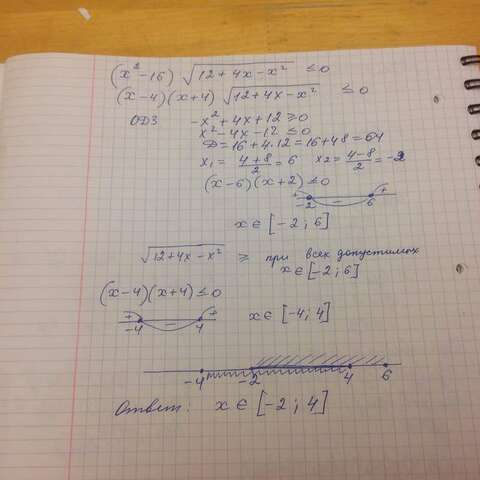 (x² - 16) √12 + 4x - x² ≤ 0
(x - 4)(x + 4) √12 + 4x - x² ≤ 0
ОДЗ -x² + 4x + 12 ≥ 0
x² - 4x - 12 ≤ 0
D = 16 + 4·12 = 16 + 48 = 64
x₁ = (4 + 8)/2 = 6 x₂ = (4 - 8)/2 = -2
(x - 6)(x + 2) ≤ 0
+ - +
-2 6
x ∈ [-2; 6]
√12 + 4x - x² ≥ при всех допустимых
x ∈ [-2; 6]
(x - 4)(x + 4) ≤ 0
+ - +
-4 4
x ∈ [-4; 4]
-4 -2 4 6
Ответ: x ∈ [-2; 4]